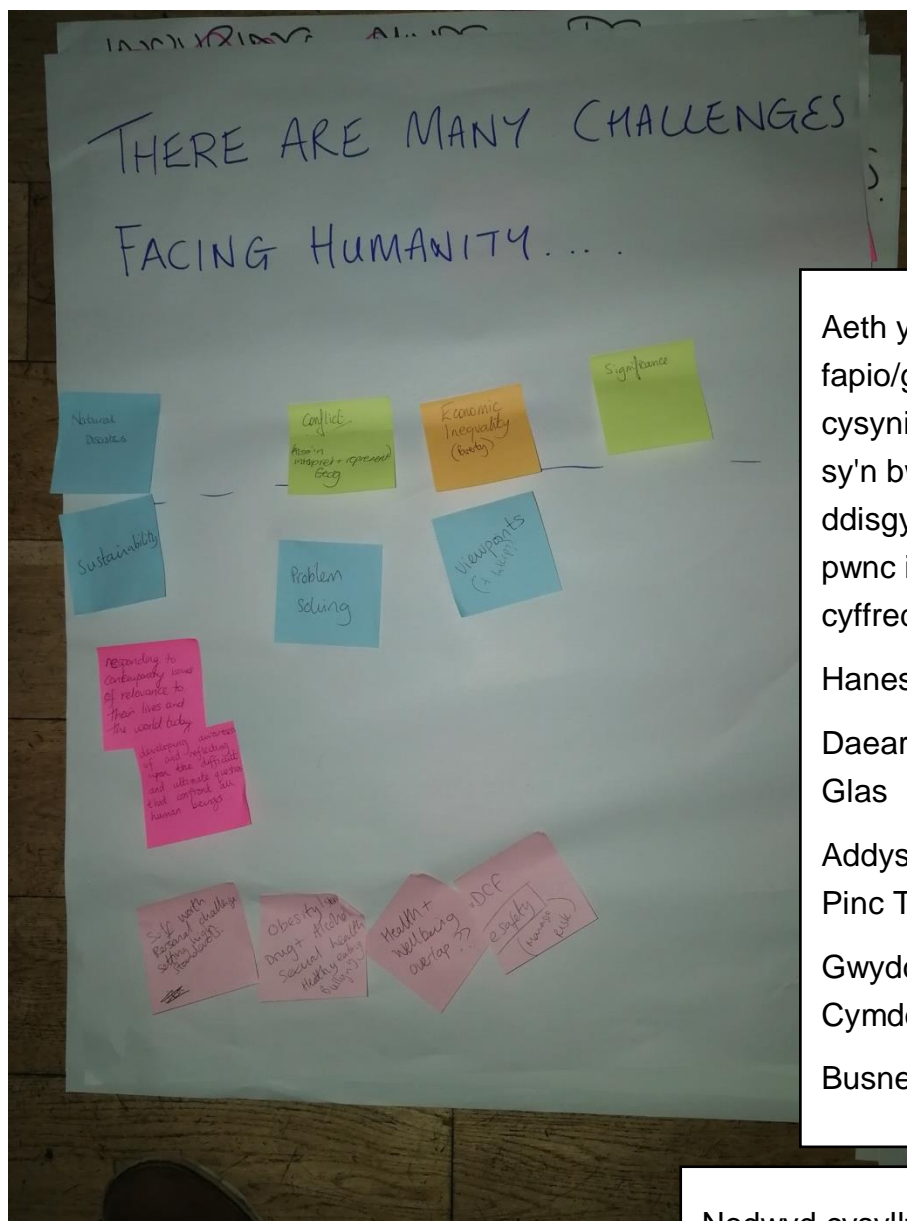 THERE ARE MANY CHALLENGES
FACING HUMANITY....
Natural
Disasters
Conflict
Also in
interpret + represent
Geog
Economic
Inequality
(Poverty)
Significance
Sustainability
Problem
Solving
Viewpoints
responding to
contemporary issues
of relevance to
their lives and
the world today
developing awareness
of and reflecting
upon the difficult
and ultimate question
that confront all
human beings
Self worth
Personal challenge
setting high
standards.
Obesity
Drug + Alcohol
Sexual health
Healthy eating
Bullying
Health +
Wellbeing
overlap??
DCF
esafety
(manage
risk)
Aeth y
fapio/g
cysyni
sy'n bw
ddisgy
pwnc i
cyffred
Hanes
Daear
Glas
Addys
Pinc T
Gwydd
Cymde
Busne
Nodwyd cysyllt